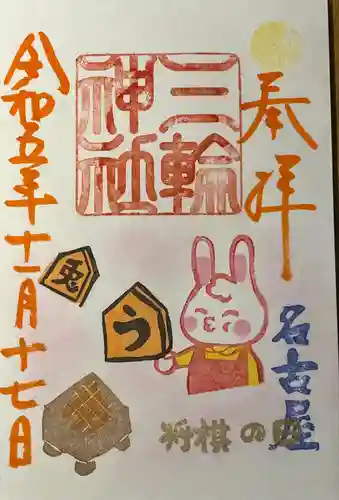 奉拝
三輪
神社
名古屋
将棋の日
兎
う
令和五年十一月十七日